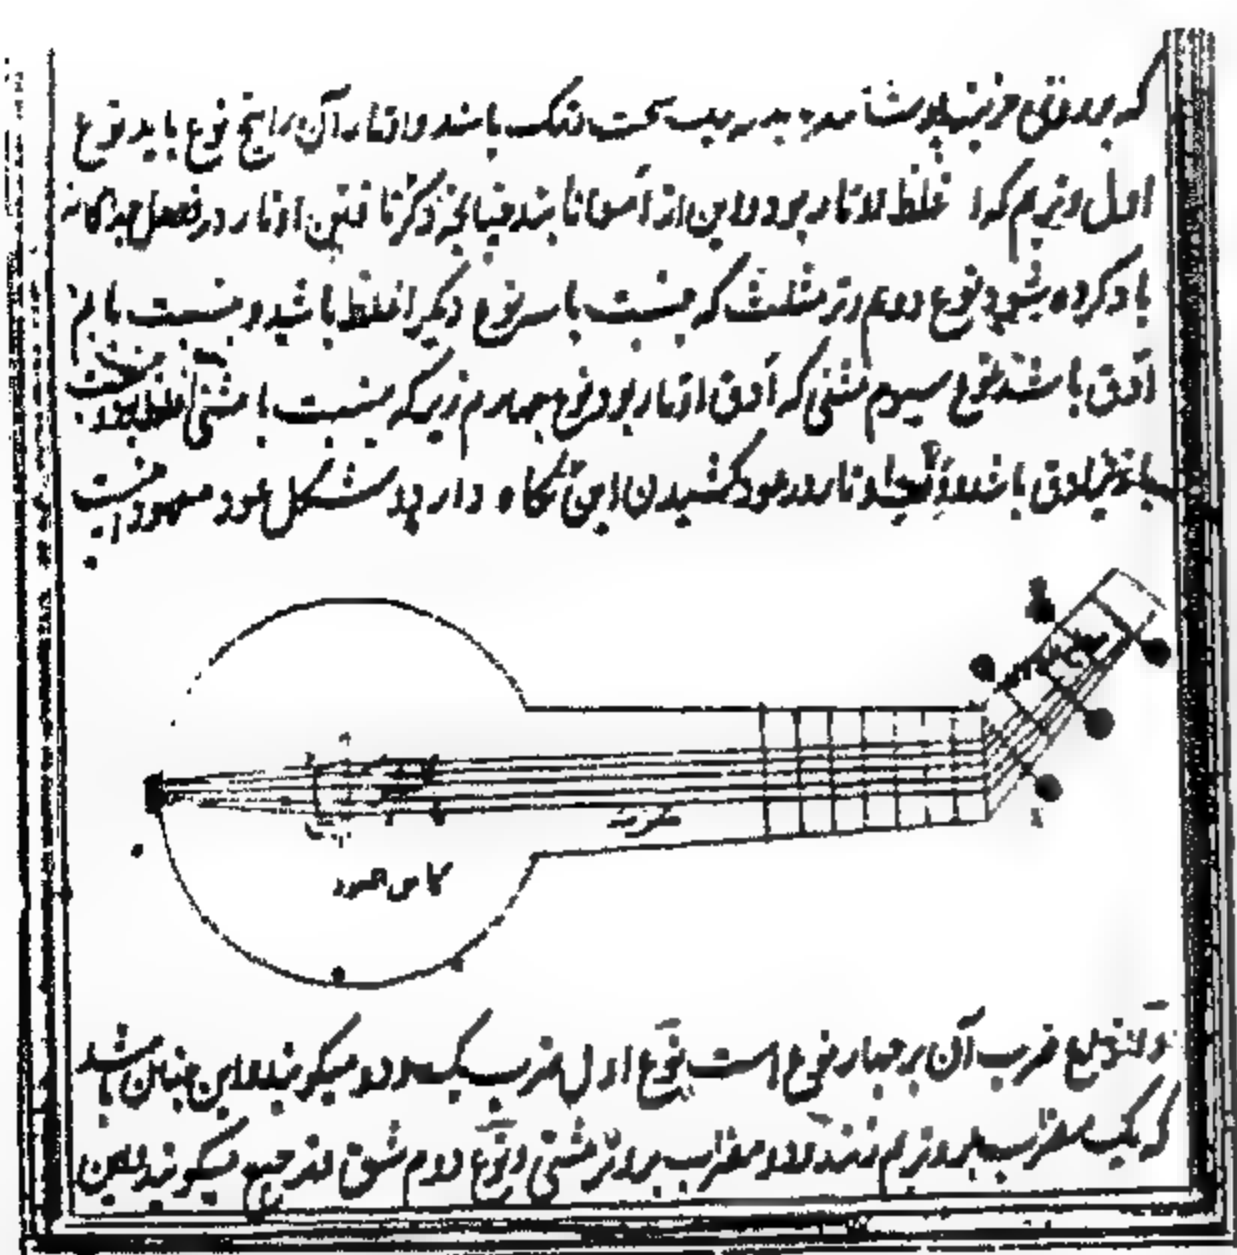 باشند و اوتار آن را پنج نوع باید نوع
اول وتر بم که اغلظ اوتار بود و این از امعا تابند چنانچه ذکر تافتن اوتار در فصل جداگانه
یاد کرده شود نوع دوم وتر مثلث که نسبت با سه نوع دیگر اغلظ باشد و نسبت با بم
ادق باشد نوع سیوم مثنی که ادق اوتار بود نوع چهارم زیر که نسبت با مثنی اغلظ بود
ادق باشد اوتار در عود کشیدن این نگاه دارد و شکل عود معهود اینست
کاس عود
و انواع ضرب آن بر چهار نوع است نوع اول ضرب یک و دو میگویند و این چنان باشد
که یک مضراب بر وتر بم زنند و دو مضراب بر وتر مثنی و نوع دوم شق و ترجیع میگویند و این